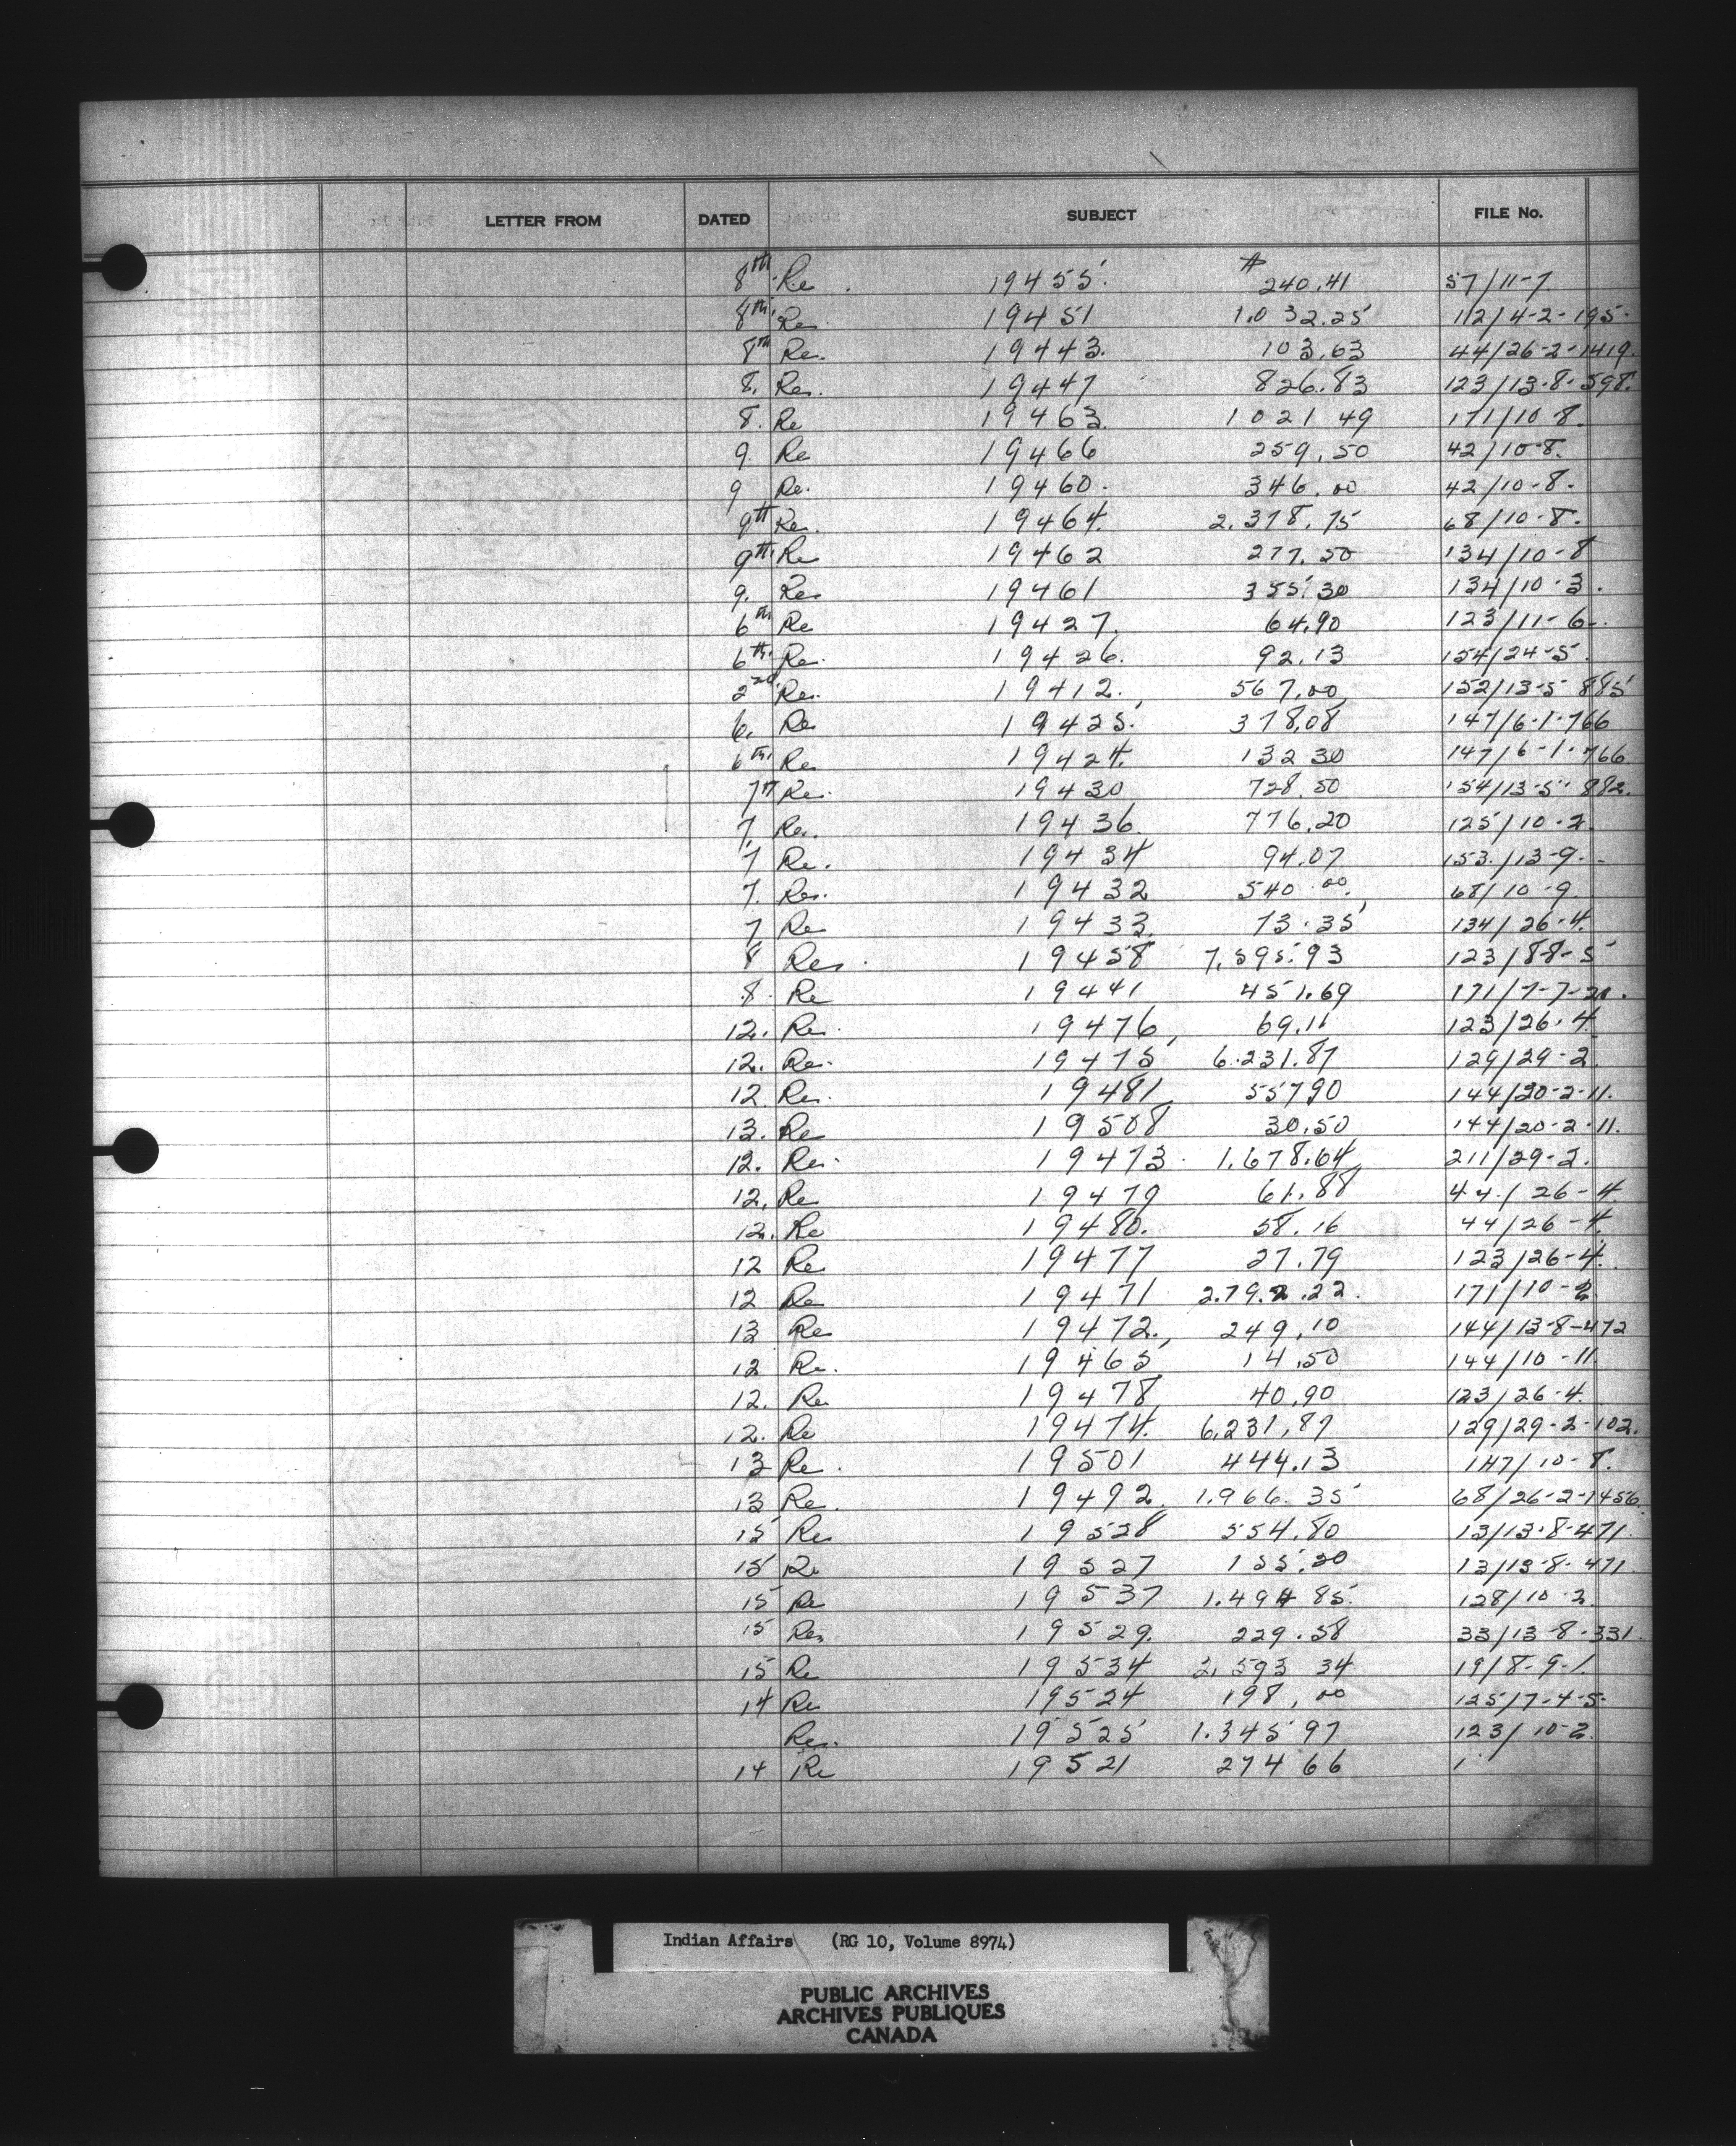 LETTER FROM DATED SUBJECT FILE No.
8th Re. 19455 # 240.41 57/11-7
8th Re. 19451 1.032.25 112/4-2-195.
8th Re. 19443. 103.63 44/26-2-1419.
8. Re. 19447 826.83 123/13-8-598.
8. Re 19463. 1021 49 171/10-8.
9. Re 19466 259.50 42/10-8.
9 Re. 19460. 346.00 42/10-8.
9th Re. 19464. 2.378.75 68/10-8.
9th Re 19462 277.50 134/10-8
9. Re 19461 355.30 134/10-3.
6th Re 19427. 64.90 123/11-6-.
6th Re. 19426. 92.13 154/24-5.
2nd Re. 19412. 567.00 152/13-5 885
6. Re 19425. 378.08 147/6-1-766
6th Re 19424. 132 30 147/6-1-766
7th Re. 19430 728.50 154/13-5-882.
7. Re. 19436. 776.20 125/10-2
7 Re. 19434 94.07 153/13-9.-
7. Re. 19432 540.00. 68/10-9
7 Re 19433. 73.35 134/26-4.
8 Re. 19458 7,595.93 123/88-5
8. Re 19441 451.69 171/7-7-21.
12. Re. 19476 69.11 123/26.4
12. Re. 19475 6.231.87 129/29-2
12 Re. 19481 557.90 144/20-2-11.
13. Re 19508 30.50 144/20-2-11.
12. Re. 19473. 1.678.64 211/29-2.
12. Re 19479 61.88 44/26-4
12. Re 19480. 58.16 44/26-4.
12 Re 19477 27.79 123/26-4.
12 Re 19471 2.792.22. 171/10-2
13 Re 19472. 249.10 144/13-8-472
12 Re. 19465 14.50 144/10-11
12. Re 19478 40.90 123/26-4.
12. Re 19474. 6,231.87 129/29-2-102.
13 Re. 19501 444.13 147/10-8.
13 Re. 19492. 1.966.35 68/26-2-1456.
15 Re 19528 554.80 13/13-8-471.
15 Re 19527 155.20 13/13-8-471.
15 Re 19537 1.494 85. 128/10-2
15 Re. 19529. 229.58 33/13-8-331.
15 Re 19534 2,593 34 19/8-9-1.
14 Re 19524 198.00 125/7-4-5.
Re. 19525 1.345 97 123/10-2
14 Re 19521 274 66 1
Indian Affairs (RG 10, Volume 8974)
PUBLIC ARCHIVES
ARCHIVES PUBLIQUES
CANADA